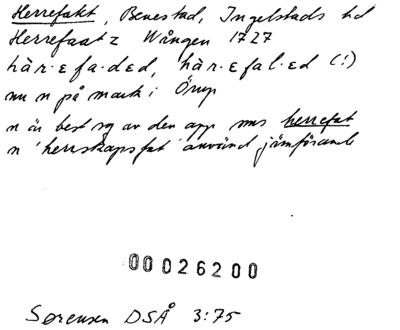 Herrefakt, Benestad, Ingelstads hd
Herrefaat z Wången 1727
hàr·ɛ fa·dɛd, hàr·ɛ fal·ɛd (!)
nu n på mark i Örup
n är best sg av den app sms herrefat
n 'herrskapsfat' använd jämförande
00026200
Sørensen DSÅ 3:75